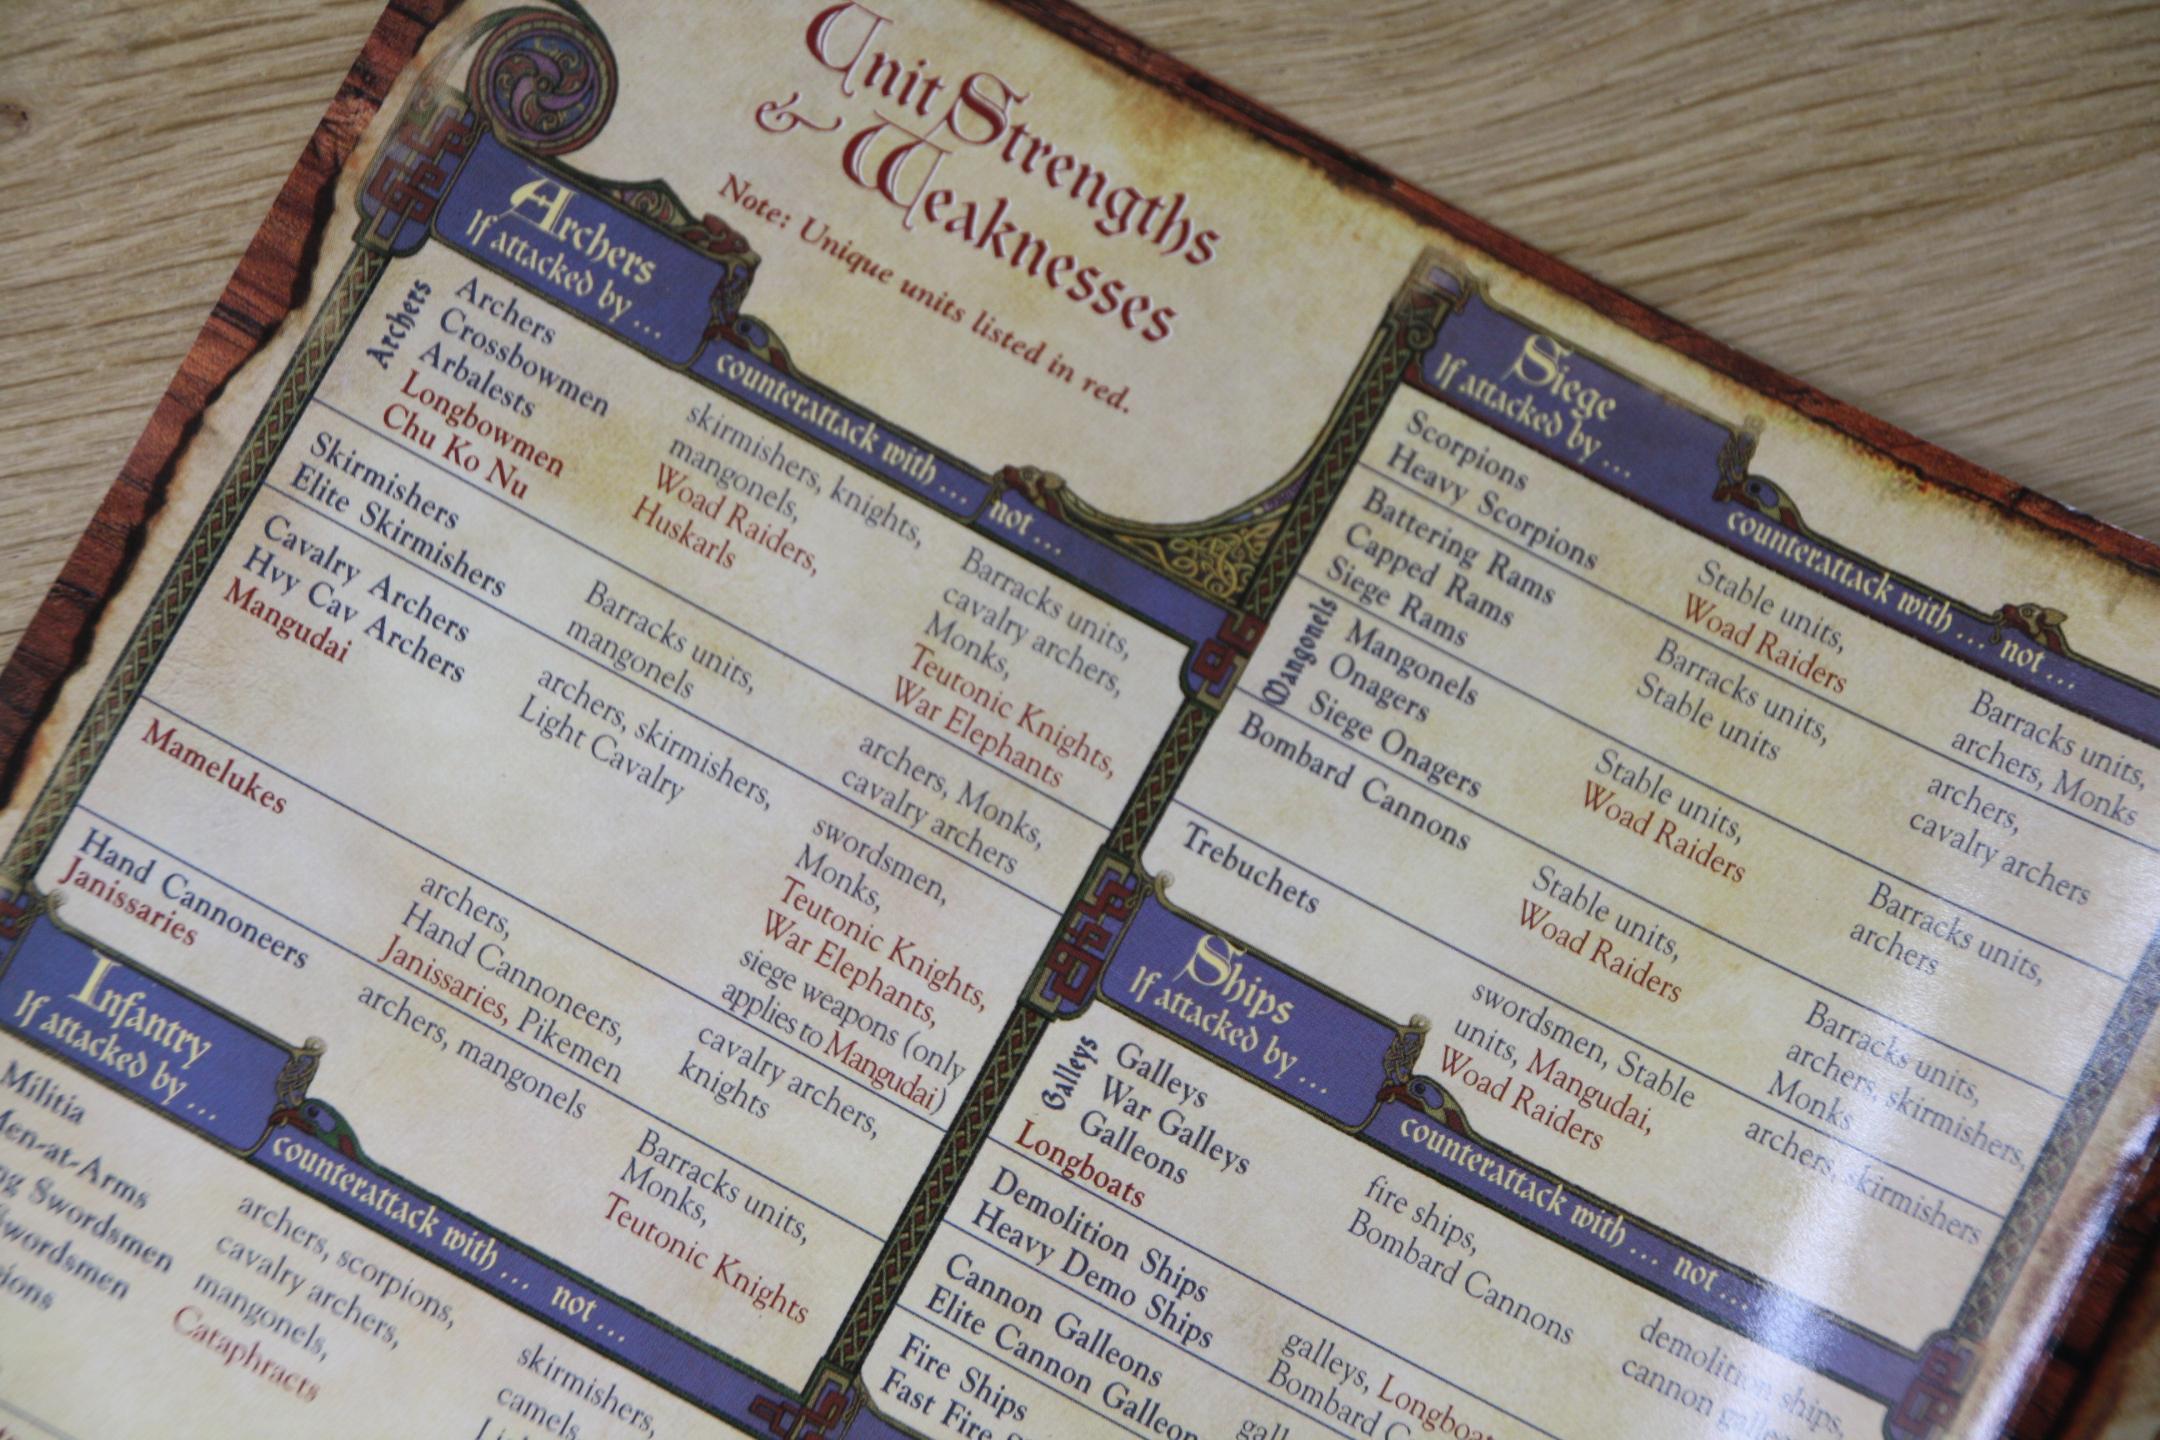 Unit Strengths
& Weaknesses
Note: Unique units listed in red.
Archers
If attacked by ...
counterattack with ...
not ...
Archers
Archers
Crossbowmen
Arbalests
Longbowmen
Chu Ko Nu
skirmishers, knights,
mangonels,
Woad Raiders,
Huskarls
Barracks units,
cavalry archers,
Monks,
Teutonic Knights,
War Elephants
Skirmishers
Elite Skirmishers
Barracks units,
mangonels
archers, Monks,
cavalry archers
Cavalry Archers
Hvy Cav Archers
Mangudai
archers, skirmishers,
Light Cavalry
swordsmen,
Monks,
Teutonic Knights,
War Elephants,
siege weapons (only
applies to Mangudai)
Mamelukes
archers,
Hand Cannoneers,
Janissaries, Pikemen
cavalry archers,
knights
Hand Cannoneers
Janissaries
archers, mangonels
Barracks units,
Monks,
Teutonic Knights
Infantry
If attacked by ...
counterattack with ...
not ...
Militia
Men-at-Arms
Swordsmen
archers, scorpions,
cavalry archers,
mangonels,
Cataphracts
skirmishers,
camels,
Siege
If attacked by ...
counterattack with ...
not ...
Scorpions
Heavy Scorpions
Stable units,
Woad Raiders
Barracks units,
archers, Monks
Battering Rams
Capped Rams
Siege Rams
Barracks units,
Stable units
archers,
cavalry archers
Mangonels
Mangonels
Onagers
Siege Onagers
Stable units,
Woad Raiders
Barracks units,
archers
Bombard Cannons
Stable units,
Woad Raiders
Barracks units,
archers, skirmishers,
Monks
Trebuchets
swordsmen, Stable
units, Mangudai,
Woad Raiders
archers, skirmishers
Ships
If attacked by ...
counterattack with ...
not ...
Galleys
Galleys
War Galleys
Galleons
Longboats
fire ships,
Bombard Cannons
demolition ships,
cannon
Demolition Ships
Heavy Demo Ships
galleys,
Bombard
Cannon Galleons
Elite Cannon
Fire Ships
Fast Fire